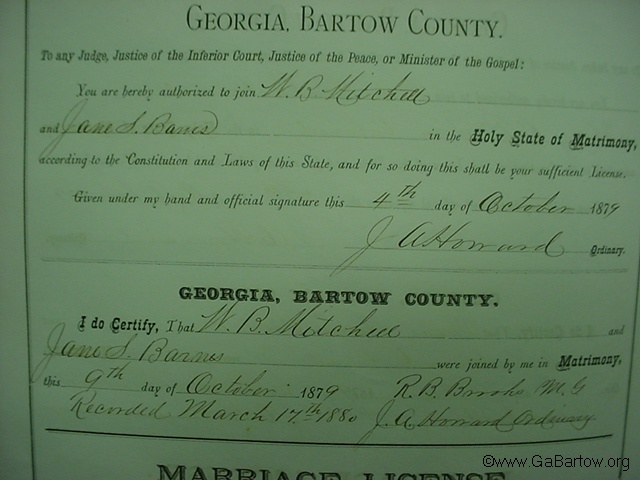 GEORGIA, BARTOW COUNTY.
To any Judge, Justice of the Inferior Court, Justice of the Peace, or Minister of the Gospel:
You are hereby authorized to join W. B. Mitchell
and Jane S. Barns in the Holy State of Matrimony,
according to the Constitution and Laws of this State, and for so doing this shall be your sufficient License.
Given under my hand and official signature this 4th day of October 1879
J A Howard Ordinary.
GEORGIA, BARTOW COUNTY.
I do Certify, That W. B. Mitchell and
Jane S. Barnes were joined by me in Matrimony,
this 9th day of October 1879 R. B. Brooks M. G
Recorded March 17th 1880 J. A Howard Ordinary
MARRIAGE LICENSE
©www.GaBartow.org